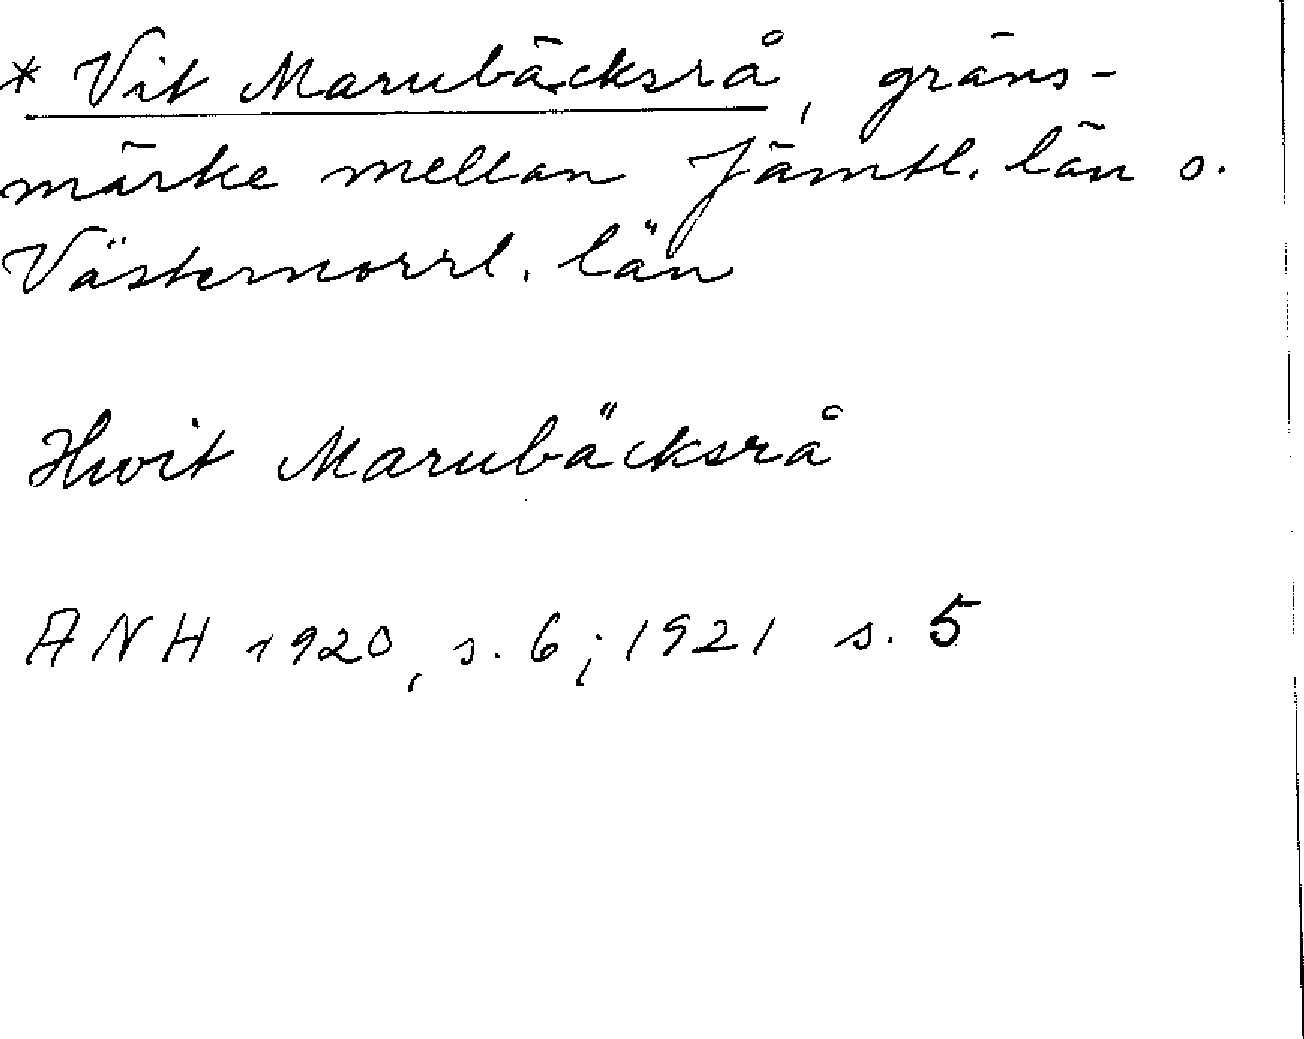 * Vit Marubäcksrå, gräns-
märke mellan Jämtl. län o.
Västernorrl. län
Hwit Marubäcksrå
ANH 1920, s. 6; 1921 s. 5